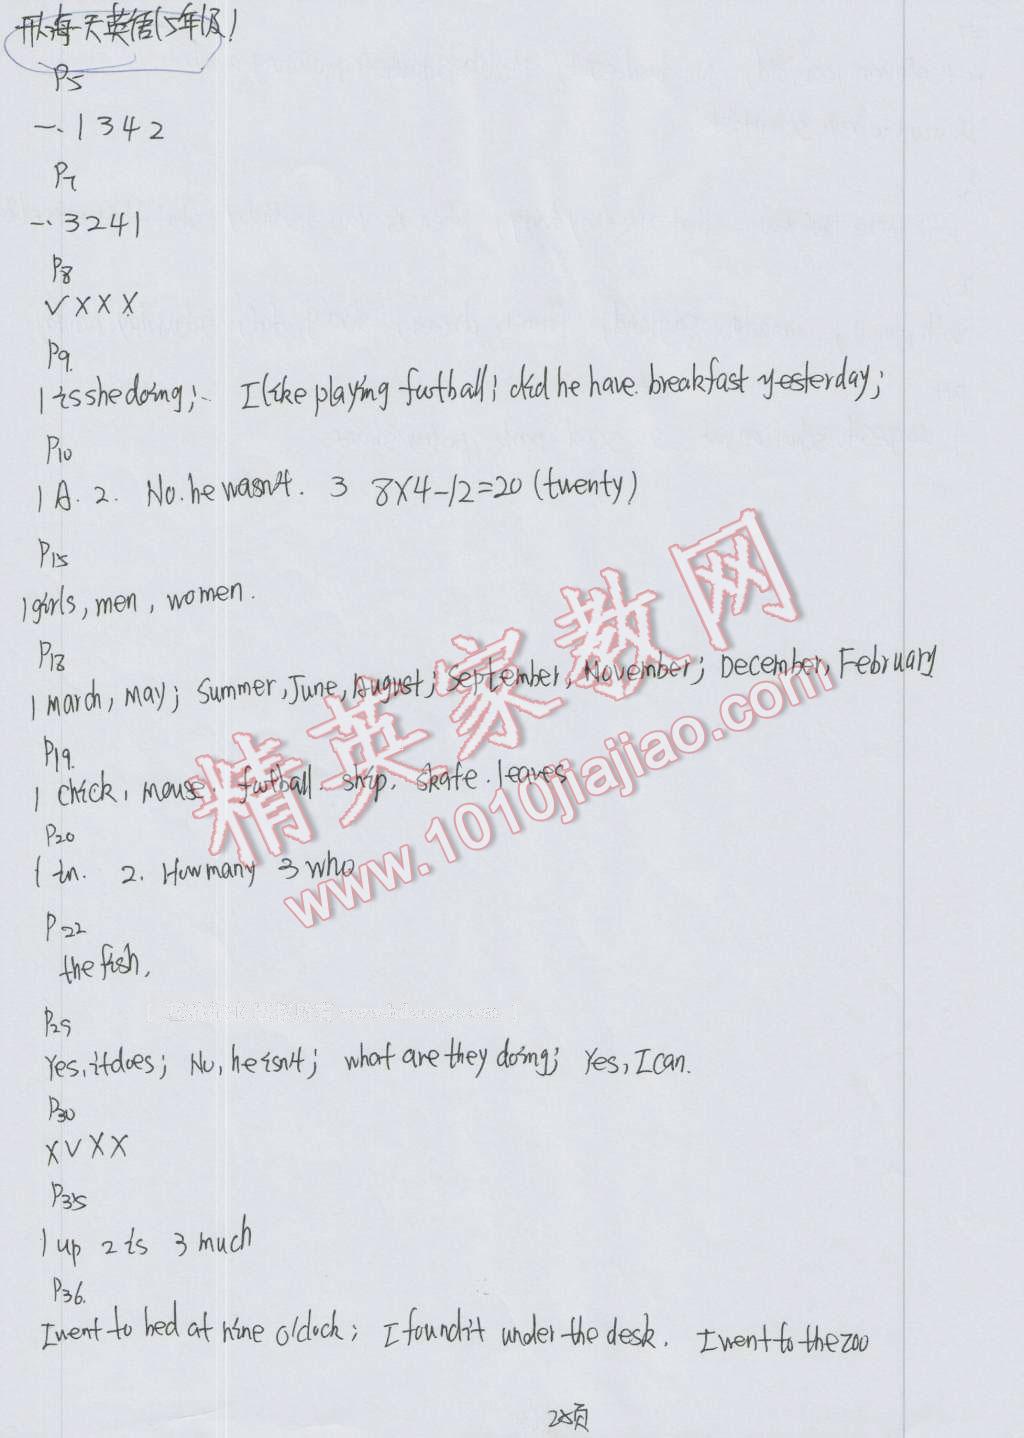 海天英语(5年级)
P5
一.1 3 4 2
P7
一.3241
P8
√ X X X
P9.
1 is she doing; I like playing football; did he have breakfast yesterday;
P10
1 A. 2. No. he wasn't. 3 8X4-12=20 (twenty)
P15
1 girls, men, women.
P18
1 march, may; Summer, June, August; September, November; December, February
P19.
1 chick, mouse. football. ship. skate. leaves
P20
1 in. 2. How many 3 who
P22
the fish.
P25
Yes, it does; No, he isn't; what are they doing; Yes, I can.
P30
X V X X
P35
1 up 2 is 3 much
P36.
I went to bed at nine o'clock; I found it under the desk. I went to the zoo
精英家教网
www.1010jiajiao.com